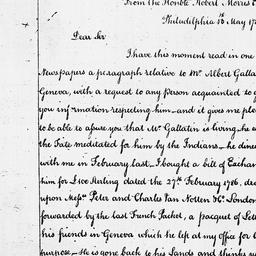 From the Honble Robert Morris E
Philadelphia 16th May 17
Dear Sir
I have this moment read in one
Newspapers a paragraph relative to Mr. Albert Galla
Geneva, with a request to any person acquainted to g
you information respecting him—and it gives me plea
to be able to assure you that Mr Gallatin is living, he
the Fate meditated for him by the Indians—he din
with me in February last—I bought a bill of Exchan
him for £100 Sterling dated the 27th February 1786, dr
upon Messrs Peter and Charles Van Notten &Co London
forwarded by the last French Packet, a pacquet of Lett
his friends in Geneva which he left at my office for t
purpose—He is gone back to his Lands and thinks